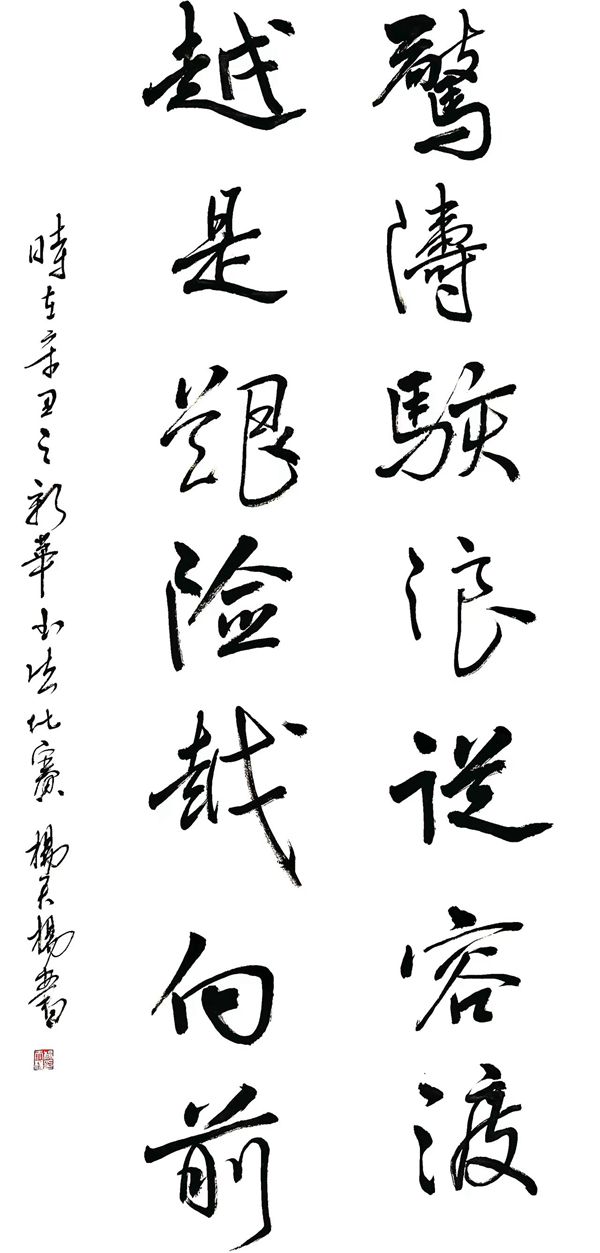 驚濤駭浪從容渡
越是艱險越向前
時在辛丑之新華書法比賽 楊天楊書